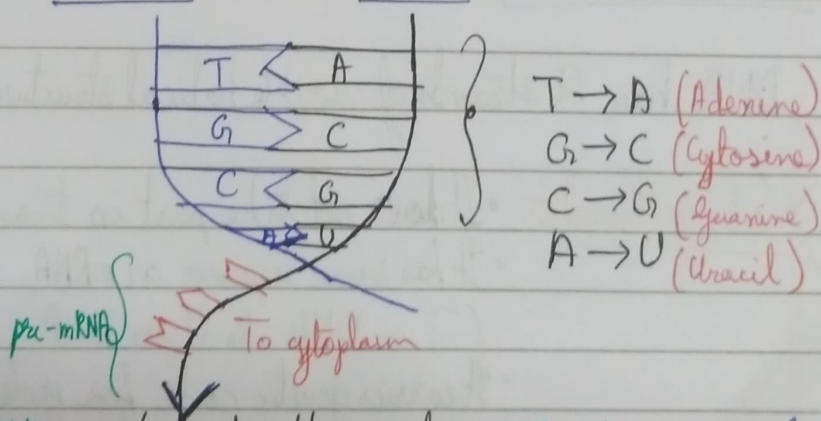 T A
G C
C G
A U
T → A (Adenine)
G → C (Cytosine)
C → G (Guanine)
A → U (Uracil)
pre-mRNA
To cytoplasm